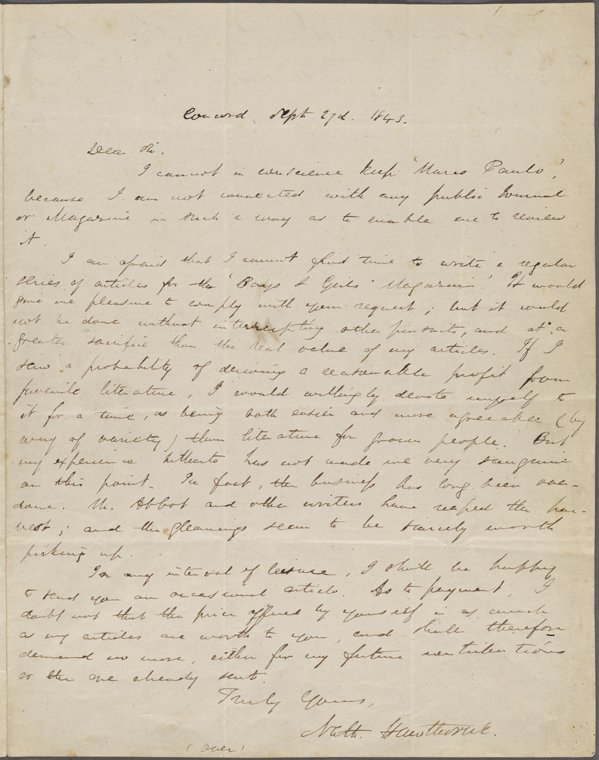 Concord, Sept 27d. 1843.
Dear Sir.
I cannot in conscience keep 'Marco Paulo',
because I am not connected with any public Journal
or Magazine in such a way as to enable me to review
it
I am afraid that I cannot find time to write a regular
series of articles for the 'Boys & Girls' Magazine.' It would
give me pleasure to comply with your request; but it would
not be done without interrupting other pursuits, and at a
greater sacrifice than the real value of my articles. If I
saw a probability of deriving a reasonable profit from
juvenile literature, I would willingly devote myself to
it for a time, as being both easier and more agreeable (by
way of variety) than literature for grown people. But
my experience hitherto has not made me very sanguine
on this point. In fact, the business has long been over-
done. Mr. Abbot and other writers have reaped the har-
vest; and the gleanings seem to be scarcely worth
picking up.
In any interval of leisure, I shall be happy
to send you an occasional article. As to payment, I
doubt not that the price offered by yourself is as much
as my articles are worth to you, and shall therefore
demand no more, either for my future contributions
or the one already sent.
Truly Yours,
Nath. Hawthorne.
(over)